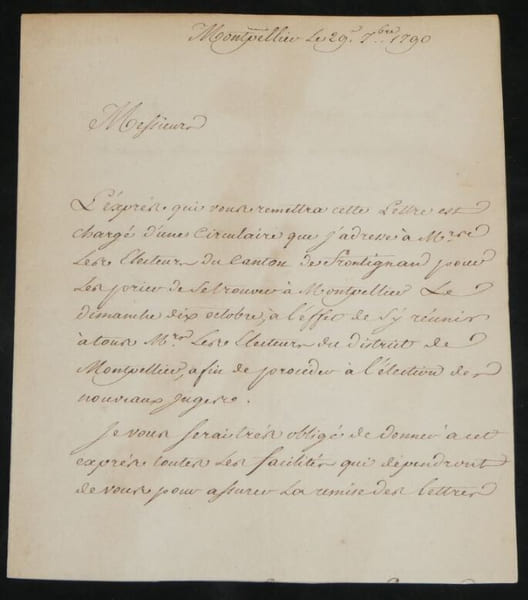 Montpellier Le 29.e 7.bre 1790
Messieurs
L'éxprès qui vous remettra cette Lettre est
chargé d'une Circulaire que j'adresse à Mrs
Les Electeurs du Canton de Frontignan pour
Les prier de se trouver à Montpellier Le
dimanche dix octobre, à l'effet de s'y réunir
à tous Mrs Les Electeurs du district de
Montpellier, afin de proceder à l'élection des
nouveaux Juges.
Je vous serai très obligé de donner à cet
exprès toutes les facilités qui dépendront
de vous pour assurer La remise des lettres